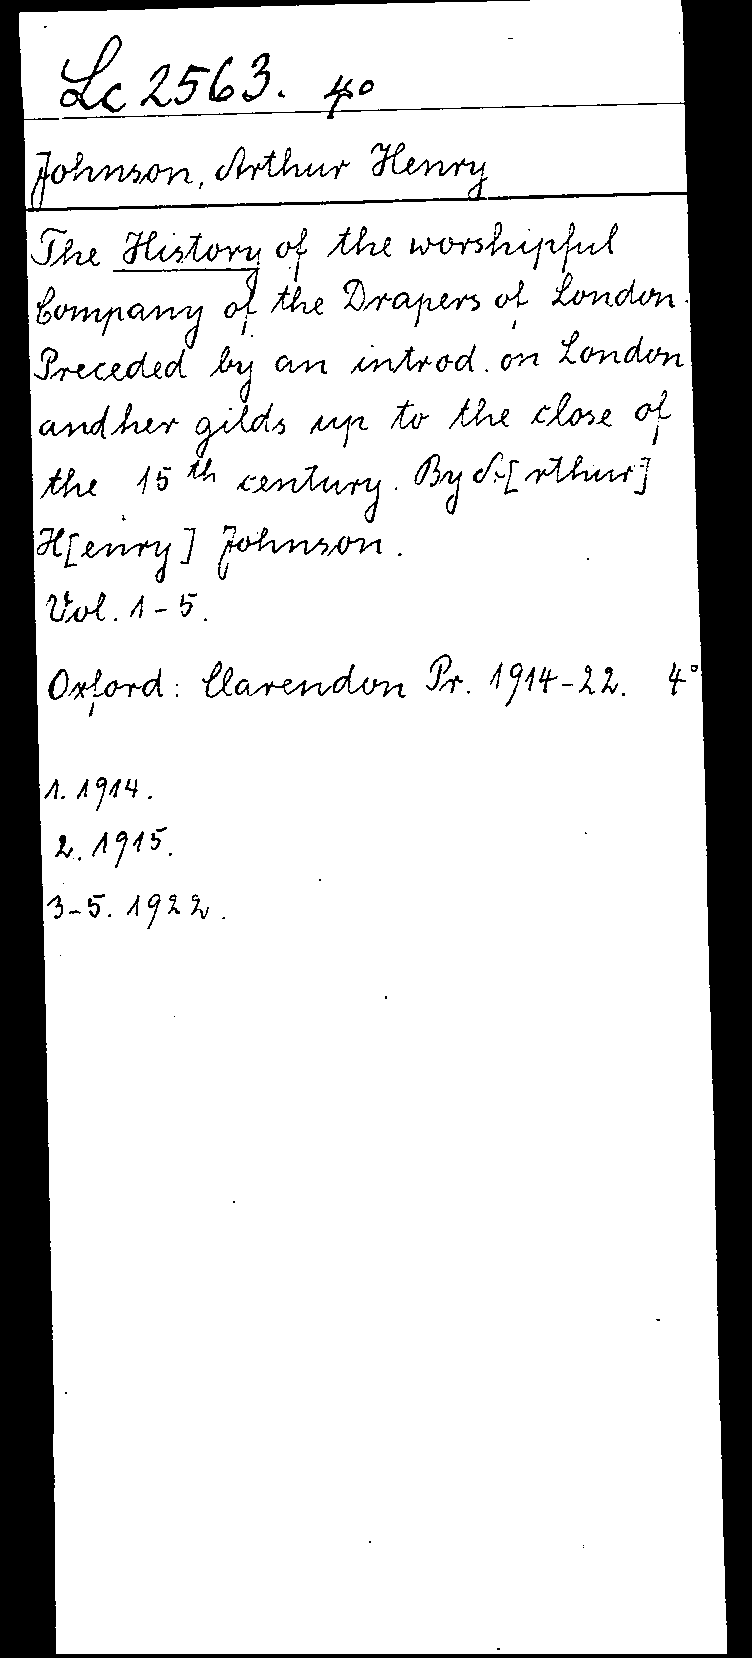 Lc 2563. 4°
Johnson, Arthur Henry
The History of the worshipful
Company of the Drapers of London.
Preceded by an introd. on London
and her gilds up to the close of
the 15th century. By A[rthur]
H[enry] Johnson.
Vol. 1-5.
Oxford: Clarendon Pr. 1914-22. 4°
1. 1914.
2. 1915.
3-5. 1922.